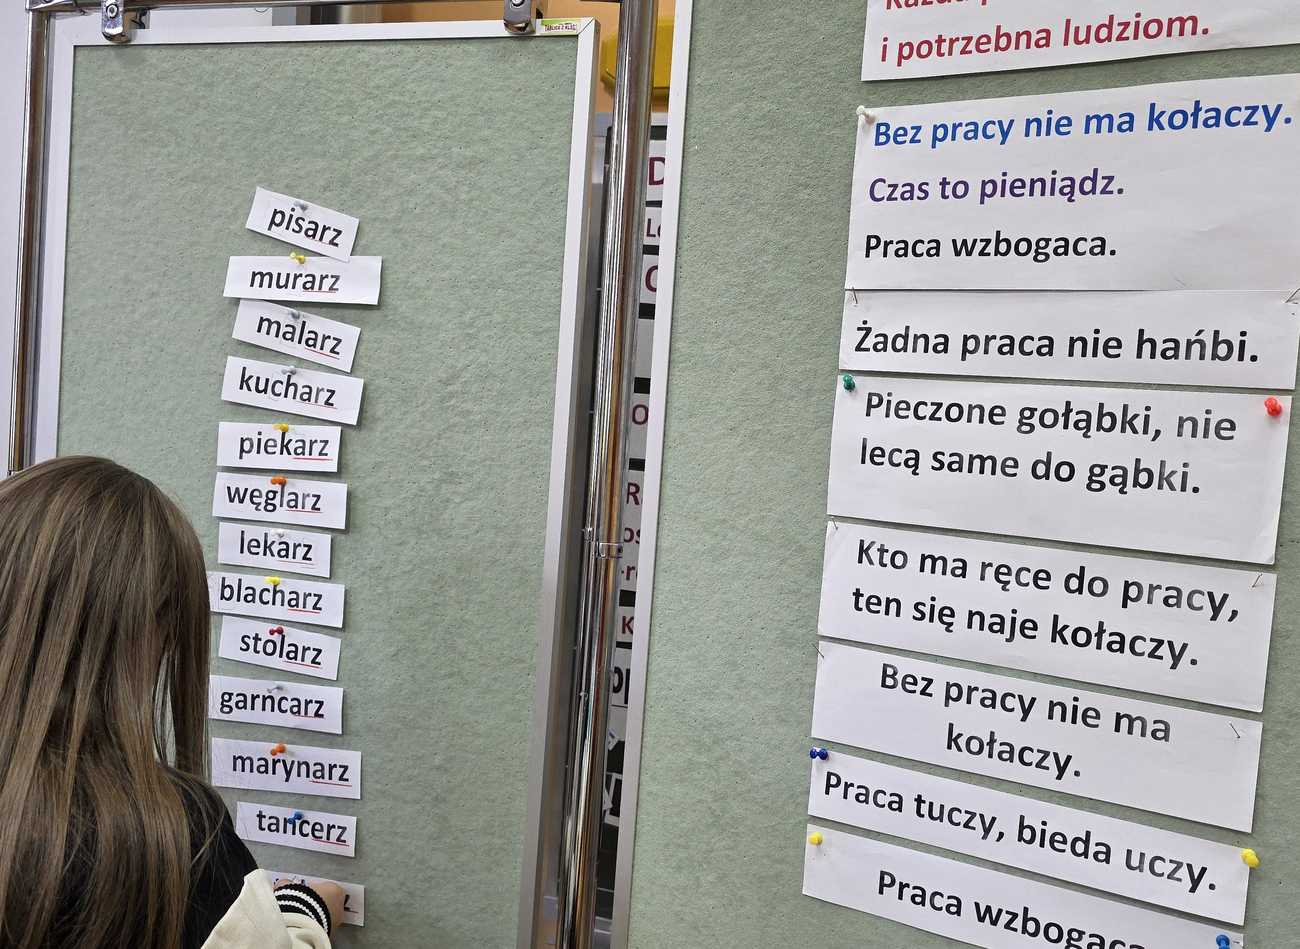 pisarz
murarz
malarz
kucharz
piekarz
węglarz
lekarz
blacharz
stolarz
garncarz
marynarz
tancerz
i potrzebna ludziom.
Bez pracy nie ma kołaczy.
Czas to pieniądz.
Praca wzbogaca.
Żadna praca nie hańbi.
Pieczone gołąbki, nie
lecą same do gąbki.
Kto ma ręce do pracy,
ten się naje kołaczy.
Bez pracy nie ma
kołaczy.
Praca tuczy, bieda uczy.
Praca wzbogaca